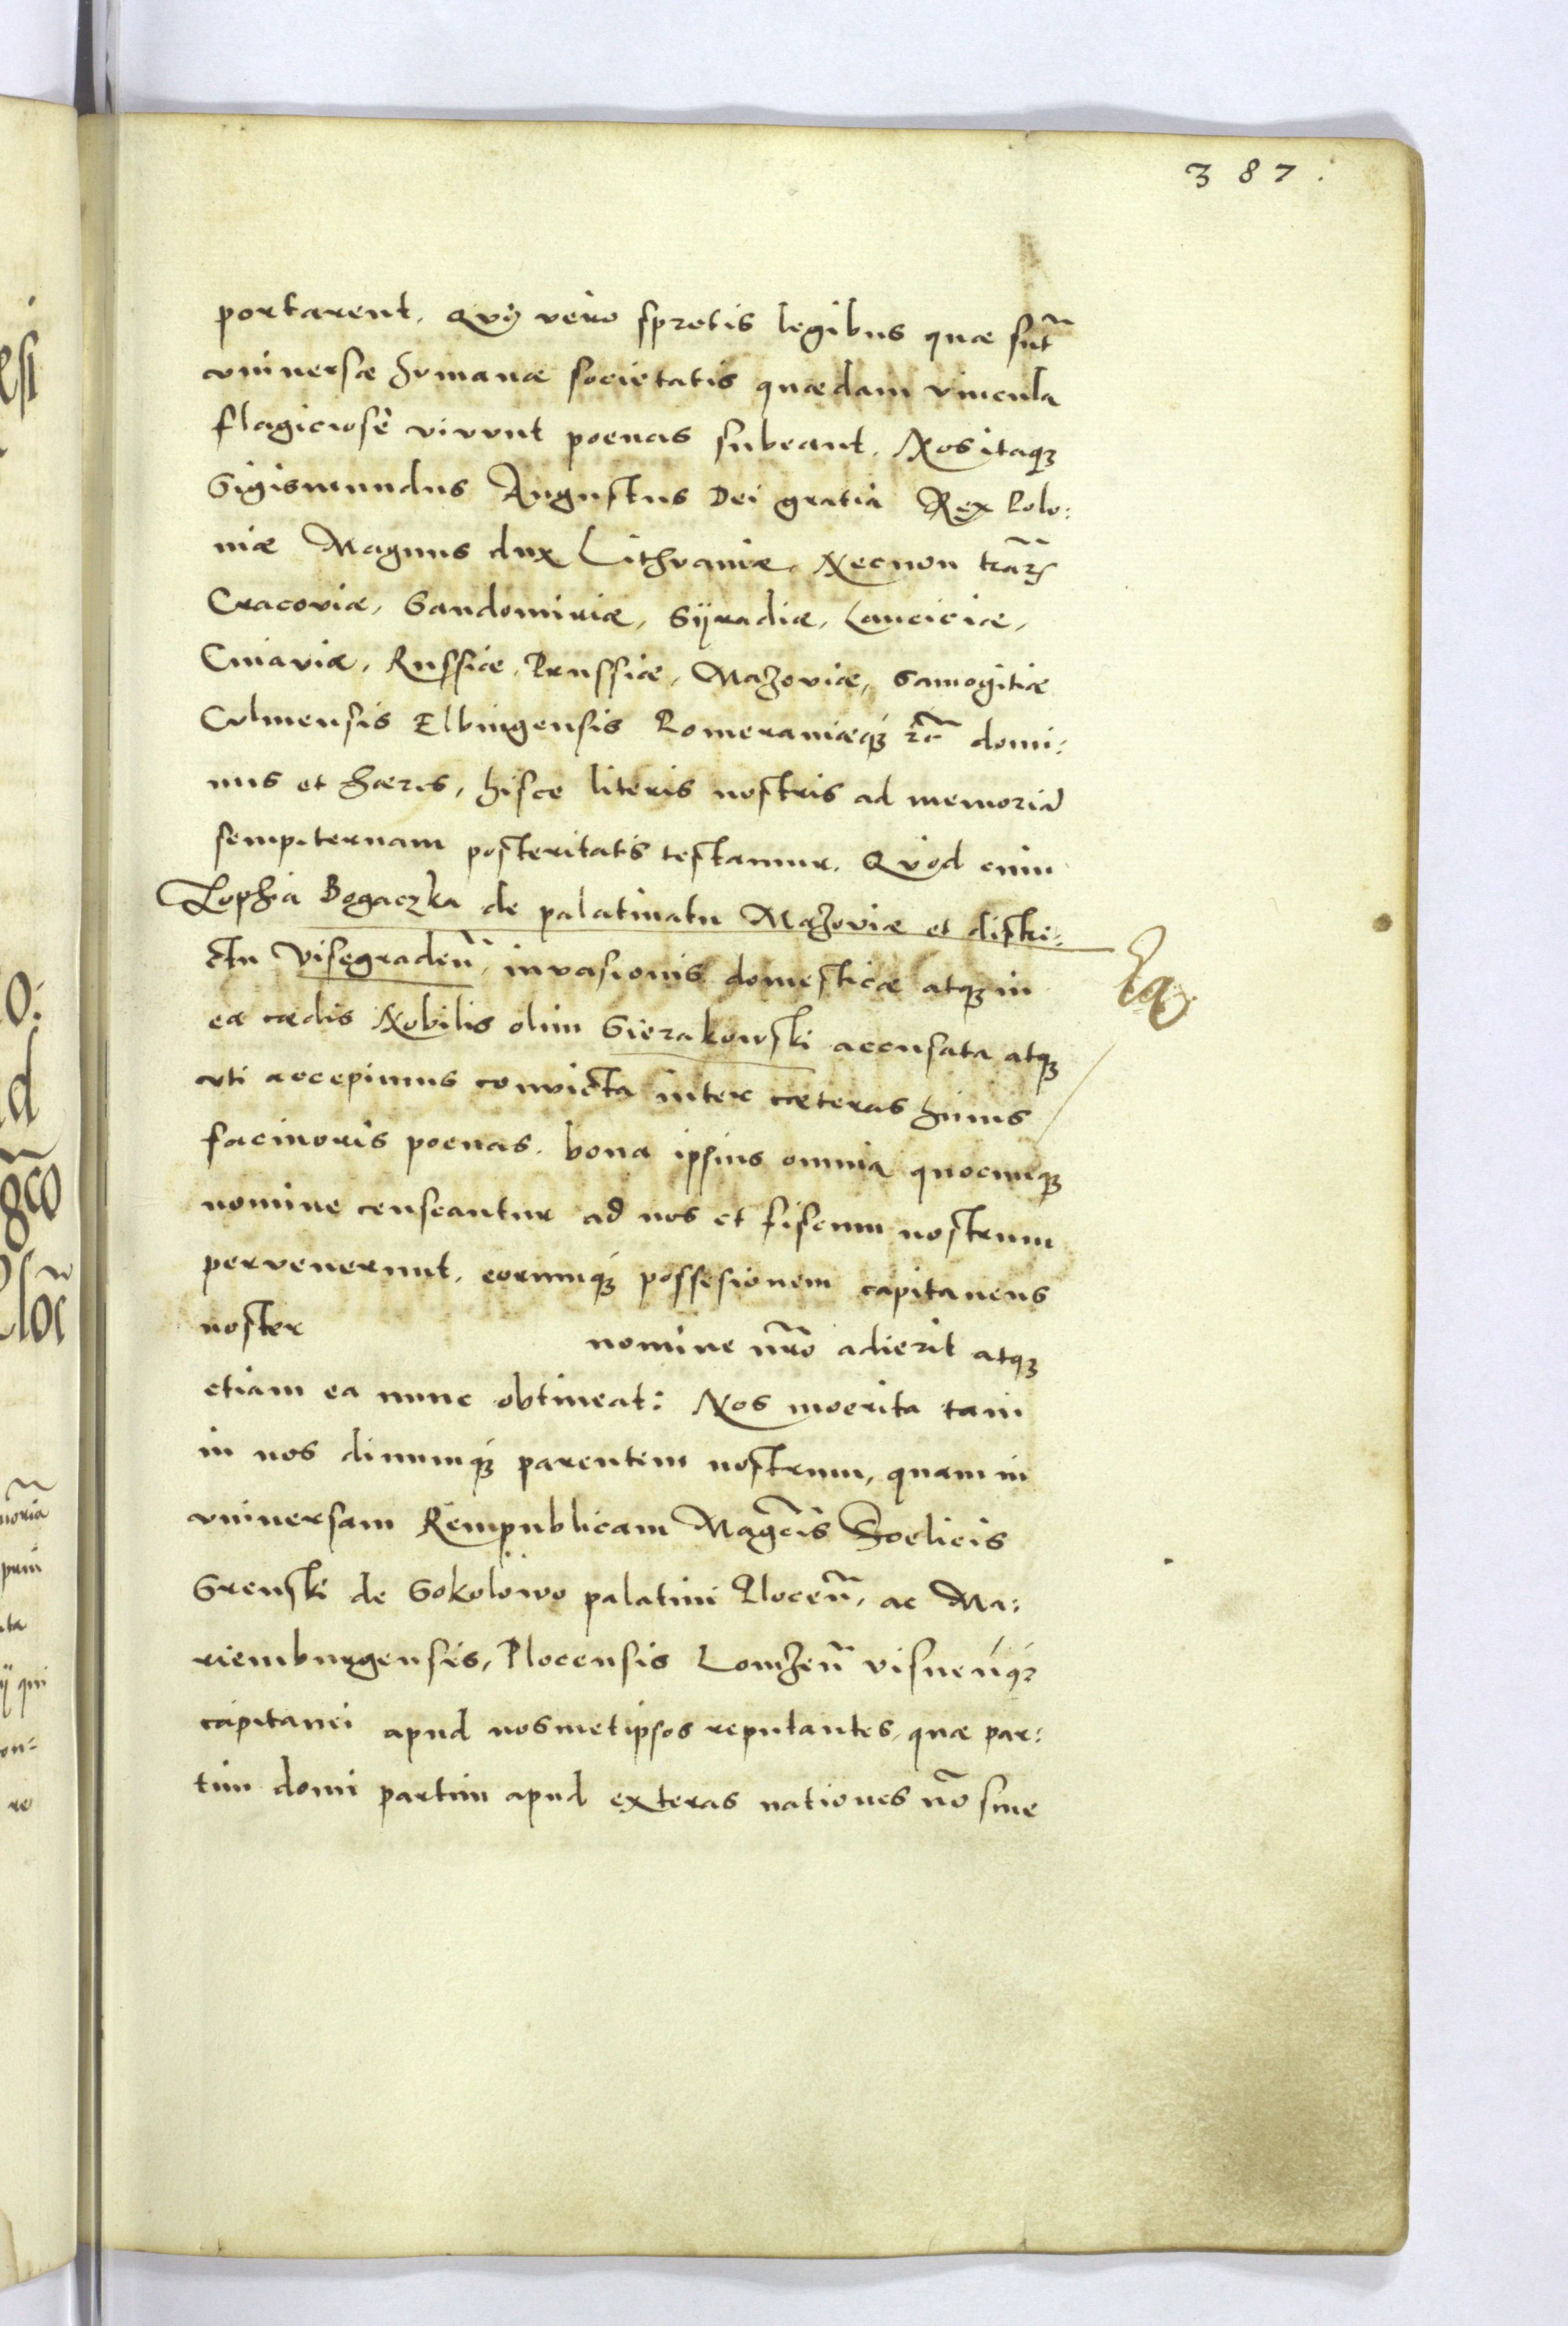 387.
portarent. Qvi vero spretis legibus quæ sūt
vniuersæ hvmanæ societatis quædam vincula
flagiciosè vivvnt poenas subeant. Nos itaqꝫ
Sigismundus Augustus Dei gratia Rex Polo:
niæ Magnus dux Lithvaniæ. Necnon trārꝫ
Cracoviæ, Sandomiriæ, Syradiæ, Lanciciæ,
Cuiaviæ, Russiæ, Prussiæ, Mazoviæ, Samogitiæ
Cvlmensis Elbingensis Pomeraniæqꝫ ꝛc̃ domi:
nus et hæres, hisce literis nostris ad memoriā
sempiternam posteritatis testamur. Qvod cum
Zophia Bogaczka de palatinatu Mazoviæ et distri:
ctu Visegradeñ, invasionis domesticæ atqꝫ in
ea cædis Nobilis olim Sierakowski accusata atqꝫ
vti accepimus convicta inter cæteras huius
facinoris poenas. bona ipsius omnia quocunqꝫ
nomine censeantur ad nos et fiscum nostrum
pervenerunt, eorumqꝫ possesionem capitaneus
noster nomine nr̃o adierit atqꝫ
etiam ea nunc obtineat: Nos moerita tam
in nos diuumqꝫ parentem nostrum, quam in
vniuersam Rempublicam Magc̃is Foelicis
Srenski de Sokolowo palatini Ploceñ, ac Ma:
riemburgensis, Plocensis Lomzeñ visneñqꝫ
capitanei apud nosmetipsos reputantes, quæ par:
tim domi partim apud exteras nationes nō sine